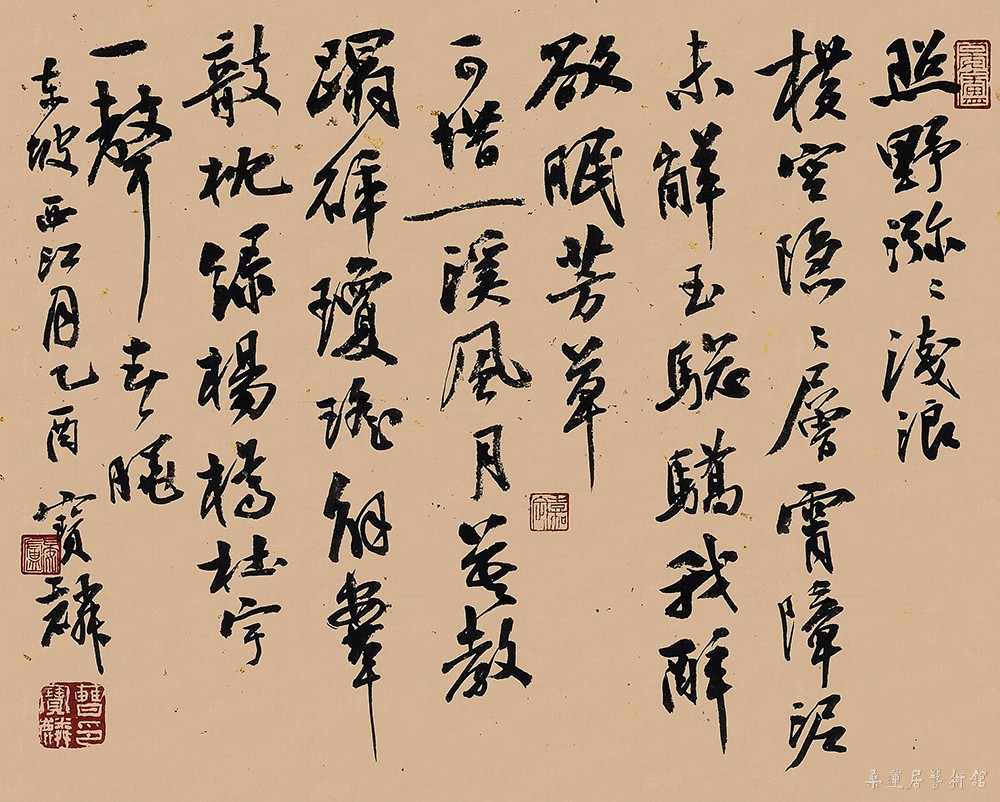 照野㳽〻淺浪
橫空隱〻層霄障泥
未解玉驄驕我醉
欲眠芳草
可惜一溪風月莫教
蹋碎瓊瑤解鞍
敧枕綠楊橋杜宇
一聲春曉
東坡西江月乙酉 寶麟
曹寶麟印
嘉定
桑蓮居藝術館